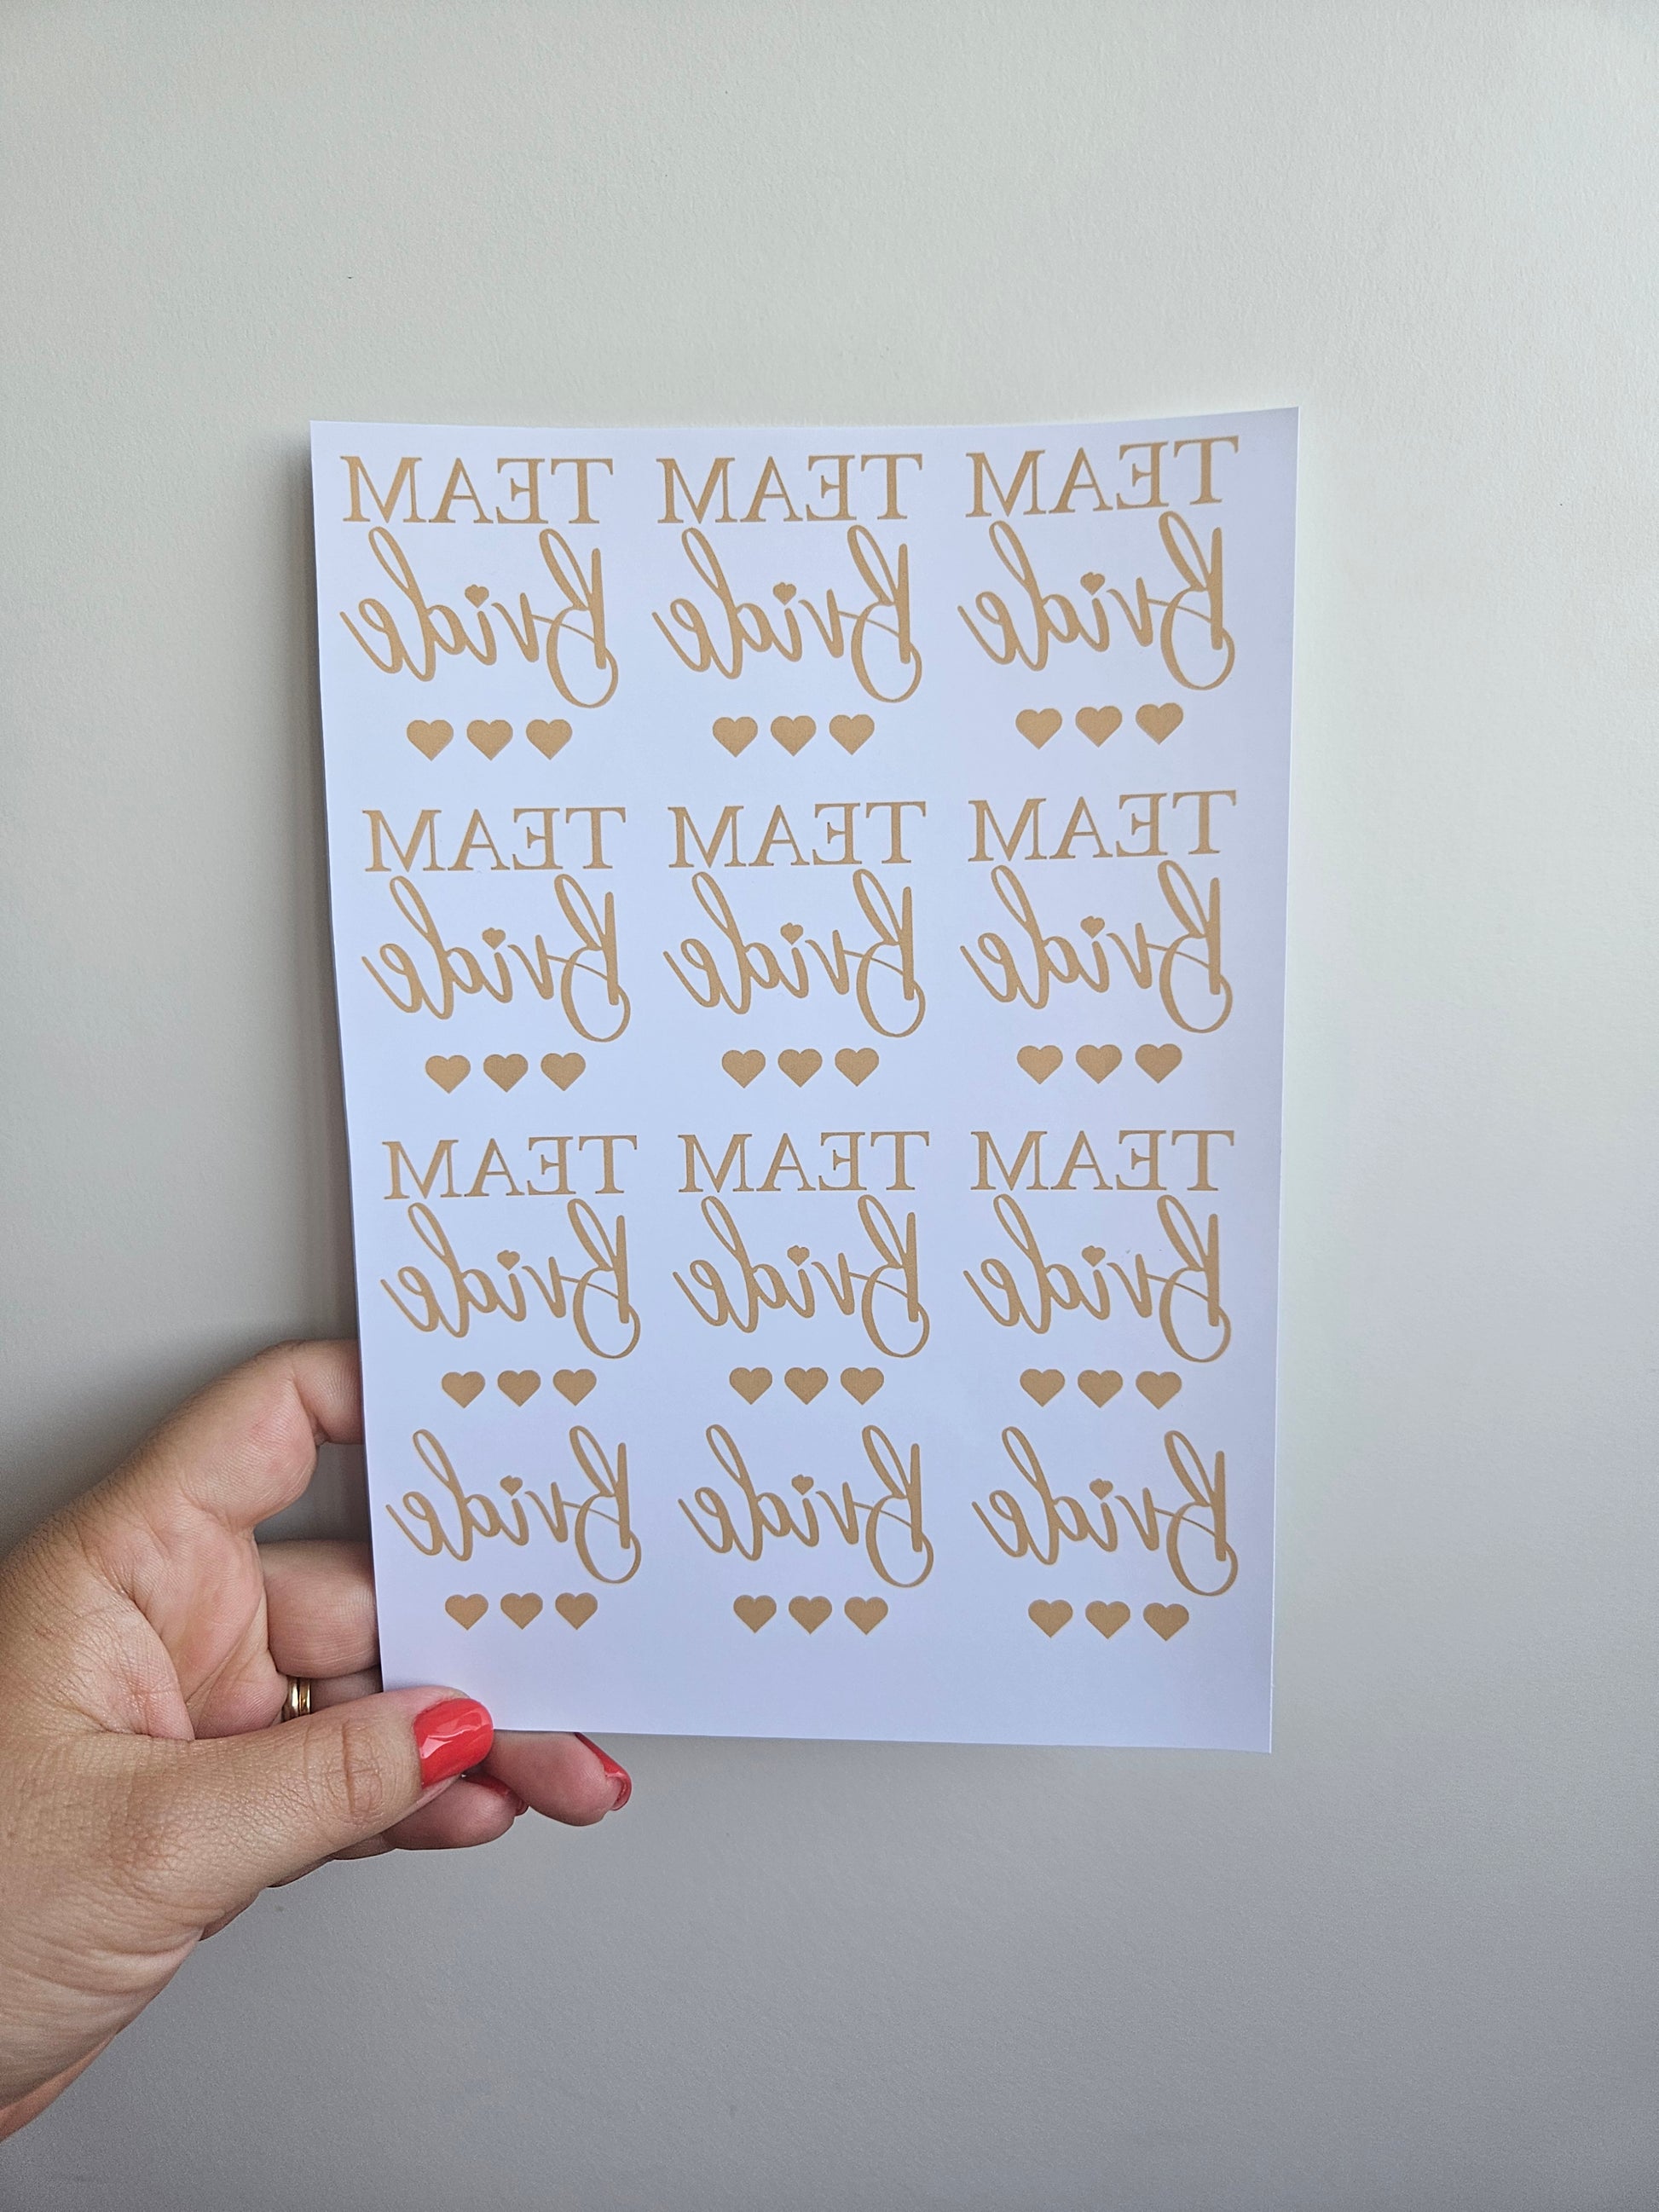 TEAM TEAM TEAM
Bride Bride Bride
TEAM TEAM TEAM
Bride Bride Bride
TEAM TEAM TEAM
Bride Bride Bride
Bride Bride Bride